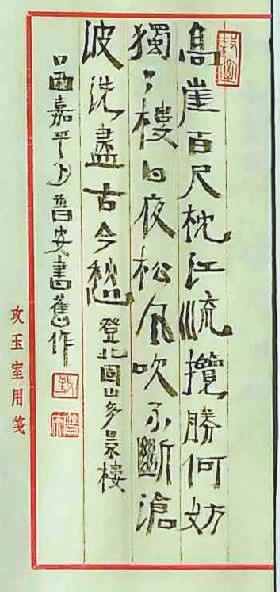 高崖百尺枕江流攬勝何妨
獨上樓日夜松風吹不斷滄
波洗盡古今愁登北固山多景樓
己酉嘉平月晉安書舊作
攻玉室用箋